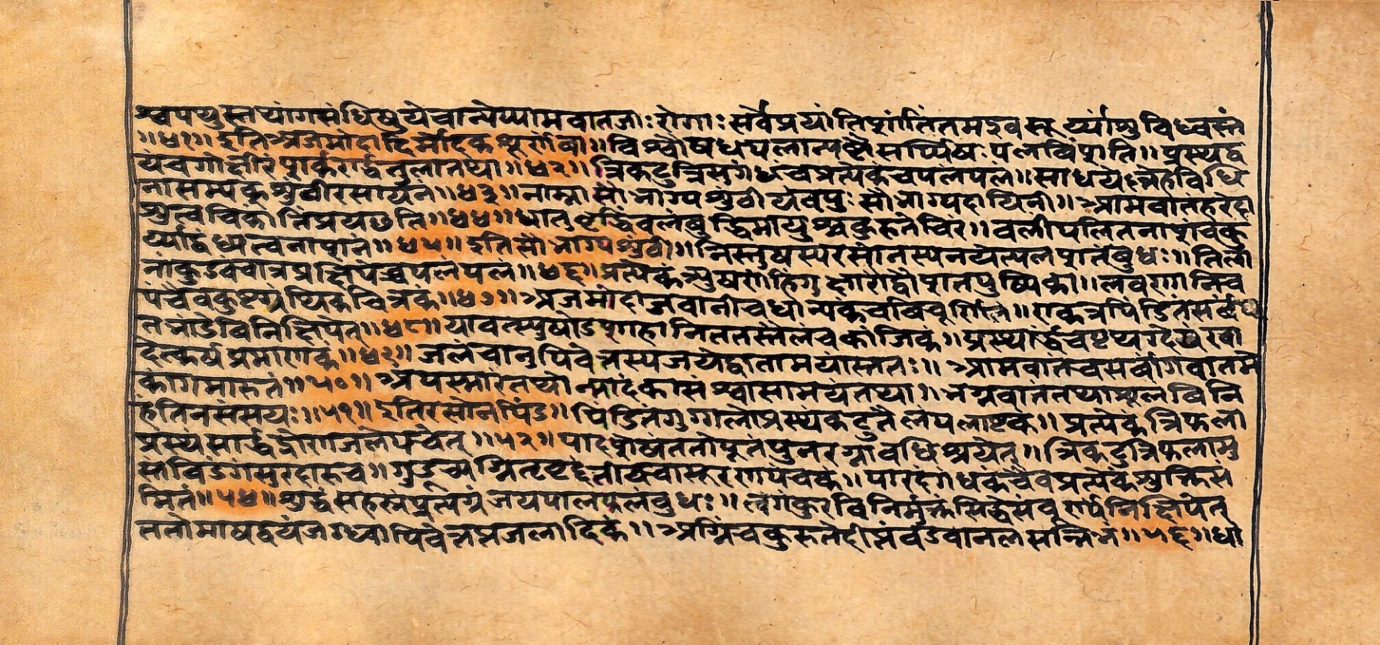 श्वपथुस्तथांगसंधिषुयेचान्येप्यामवातजाः रोगाः सर्वेप्रयांतिशांतिंतमइवसूर्य्यांशुविध्वस्तं
॥४१॥ इतिअजमोदादिर्मोदकश्चूर्णोवा॥ विश्वौषधपलान्यष्टौसर्प्पिषः पलविंशति॥ प्रस्थद्व
यंचगोक्षीरंशर्करार्द्धतुलातथा॥४२॥ त्रिकटुत्रिसुगंधंचप्रत्येकंचपलंपलं॥ साधयेत्स्नेहविधि
नासम्यक्शुंठीरसायनं॥४३॥ नाम्नासौभाग्यशुंठीयंवपुः सौभाग्यदायिनी॥ आमवातहरंहा
शुत्वचिकांतिंप्रयछति॥४४॥ धातुवृद्धिंबलंबुद्धिमायुश्चकुरुतेचिरं॥ वलीपलितनाशंचकु
र्य्याद्वंध्यात्वनाशनं॥४५॥ इतिसौभाग्यशुंठी॥ निस्तुषस्यरसोनस्यनयेत्पलशतंबुधः॥ तिला
नांकुडवंचात्रप्रक्षिपेच्चपलंपलं॥४६॥ प्रत्येकंत्र्युषणंहिंगुक्षारौद्वौशतपुष्पिका॥ लवणानिच
पंचैवकुष्टग्रंथिकचित्रकं॥४७॥ अजमोदाजवानीचधान्यकंचविचूर्णितं॥ एकत्रपिंडितंसर्वंघृ
तभांडेविनिक्षिपेत्॥४८॥ यावत्स्युषोडशाहानितततस्तैलंचकांजिकं॥ प्रस्थार्द्धंच
देत्कर्षप्रमाणकं॥४९॥ जलंचानुपिबेत्तस्यजयेद्वातामयांस्ततः॥ आमवातंचसर्वांगवातमे
कांगमारुतं॥५०॥ अपस्मारंतथोन्मादंकासश्वासामयंतथा॥ भग्नवातंतथाशूलंविनि
हंतिनसंसयः॥५१॥ इतिरसोनपिंड॥ पिंडितंगुग्गलोप्रस्थंकटुतैलपलाष्टकं॥ प्रत्येकंत्रिफला
प्रस्थंसार्द्धद्रोणजलेपचेत्॥५२॥ पादशेषंततोपूतंपुनरग्नावधिश्रयेत्॥ त्रिकटुत्रिफलामु
स्तविडंगंसुरदारुच॥ गुडूच्यग्नित्रिवृद्दंती पारदंगंधकंचैवप्रत्येकंशुक्तिसं
मितं॥५४॥ शुद्धंसहस्रं जयपालफलंबुधः॥ त्वगंकुरविनिर्मुक्तंसिद्धेसंचूर्ण्यनिक्षिपेत्
ततोमाषद्वयंजग्ध्वापिबेत्तप्तजलादिकं॥ अग्निंचकुरुतेदीप्तंवडवानलसन्निभं॥५६॥ धा